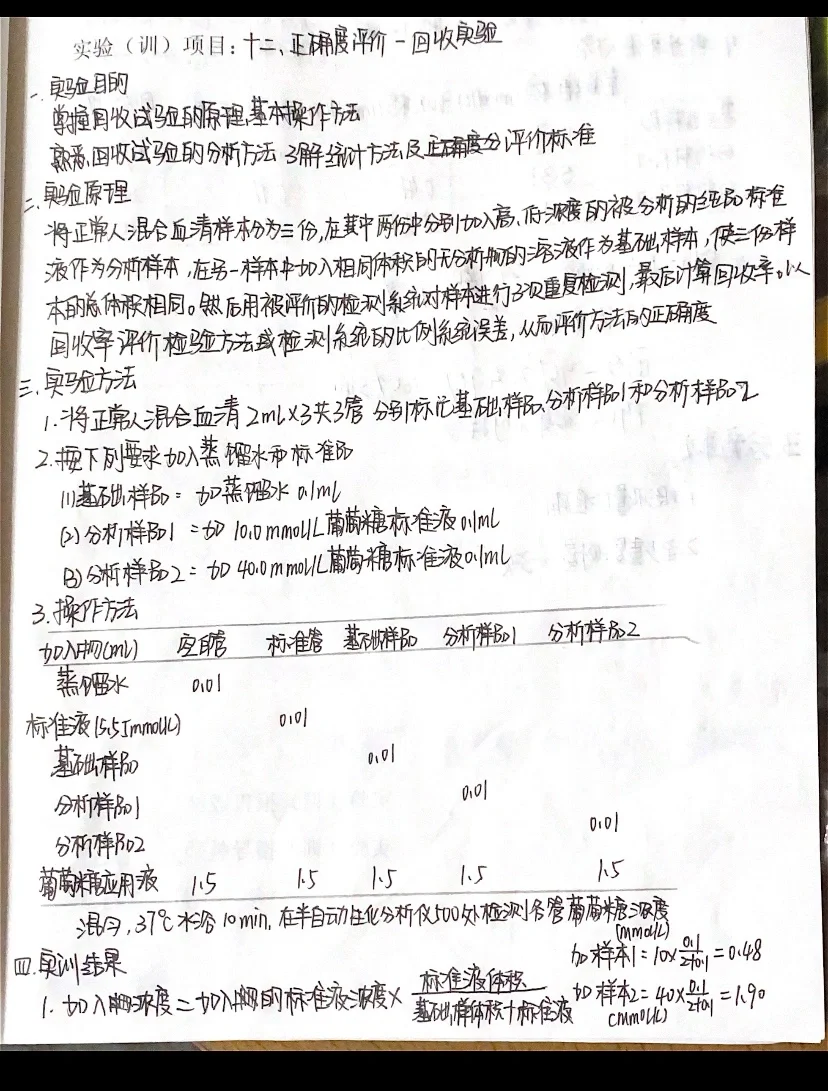 实验（训）项目：十二、正确度评价－回收实验
一、实验目的
掌握回收试验的原理、基本操作方法
熟悉回收试验的分析方法 了解统计方法及正确度分评价标准
二、实验原理
将正常人混合血清样本分为三份,在其中两份中分别加入高、低浓度的被分析的纯品标准
液作为分析样本,在另一样本中加入相同体积的无分析物的溶液作为基础样本,使三份样
本的总体积相同。然后用被评价的检测系统对样本进行3次重复检测,最后计算回收率。以
回收率评价检验方法或检测系统的比例系统误差,从而评价方法的正确度
三、实验方法
1.将正常人混合血清 2mL×3共3管 分别标记基础样品、分析样品1和分析样品2
2.按下列要求加入蒸馏水和标准品
(1)基础样品=加蒸馏水 0.1mL
(2)分析样品1 =加 10.0mmol/L葡萄糖标准液0.1mL
(3)分析样品2=加 40.0mmol/L葡萄糖标准液0.1mL
3.操作方法
加入物(mL) 空白管 标准管 基础样品 分析样品1 分析样品2
蒸馏水 0.01
标准液(5.55mmol/L) 0.01
基础样品 0.01
分析样品1 0.01
分析样品2 0.01
葡萄糖应用液 1.5 1.5 1.5 1.5 1.5
混匀,37℃水浴10min,在半自动生化分析仪500处检测各管葡萄糖浓度
(mmol/L)
四.实训结果
加样本1=10×0.1/2+0.1=0.48
1.加入浓度=加入的标准液浓度×标准液体积/基础样体积+标准液
加样本2=40×0.1/2+0.1=1.90
(mmol/L)